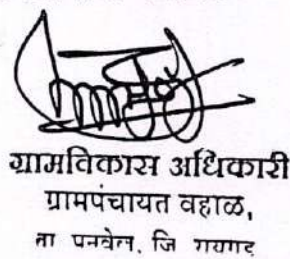 ग्रामविकास अधिकारी
ग्रामपंचायत वहाळ,
ता पनवेल, जि रायगड